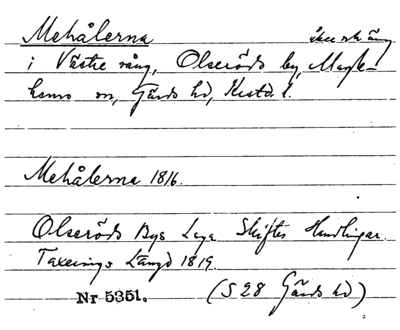 Mehålerna åker och äng
i Västra vång, Olseröds by, Magle-
hems sn, Gärds hd, Kristd. l.
Mehålerna 1816.
Olseröds Bys Laga Skiftes Handlingar
Taxerings Längd 1819.
Nr 5351. (S 28 Gärds hd)